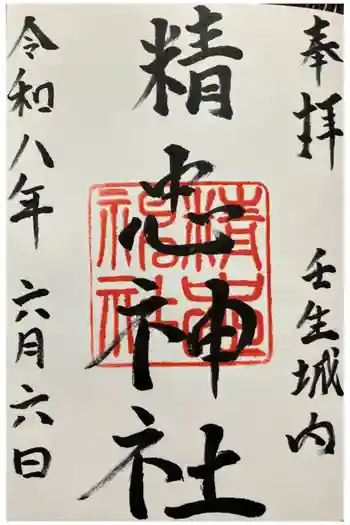 奉拝
壬生城内
精忠神社
令和八年 六月六日